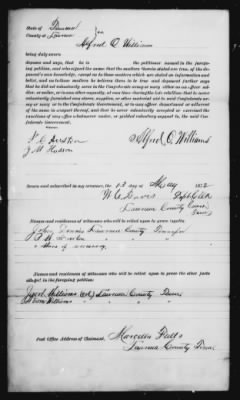 State of Tennessee
County of Lawrence
Alfred O. Williams
being duly sworn
deposes and says, that he is the petitioner named in the foregoing
petition, and who signed the same; that the matters therein stated are true, of the deponent's
own knowledge, except as to those matters which are stated on information and belief,
and as to those matters he believes them to be true; and deponent further says
that he did not voluntarily serve in the Confederate army or navy, either as an officer, soldier,
or sailor, or in any other capacity, at any time during the late rebellion; that he never
voluntarily furnished any stores, supplies, or other material aid to said Confederate
army or navy, or to the Confederate Government, or to any officer, department, or adherent
of the same in support thereof, and that he never voluntarily accepted or exercised
the functions of any office whatsoever under, or yielded voluntary support to, the said
Confederate Government.
Alfred O. Williams
J. M. Hudson
Sworn and subscribed in my presence, the 13 day of May 1872
W. C. Davis
Lawrence County
Tenn
Names and residences of witnesses who will be relied upon to prove loyalty:
John Lawrence County Tennessee
Names and residences of witnesses who will be relied upon to prove the other facts
alleged in the foregoing petition:
Williams Lawrence County Tenn
Williams
Post Office Address of Claimant,
Marcella Falls
Lawrence County Tenn